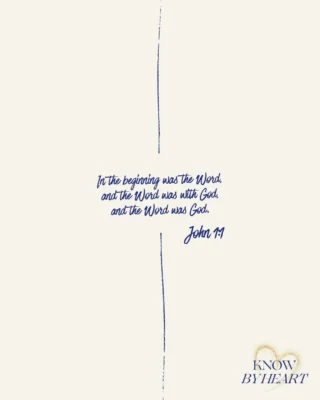 In the beginning was the Word,
and the Word was with God,
and the Word was God.
John 1:1
KNOW
BY HEART